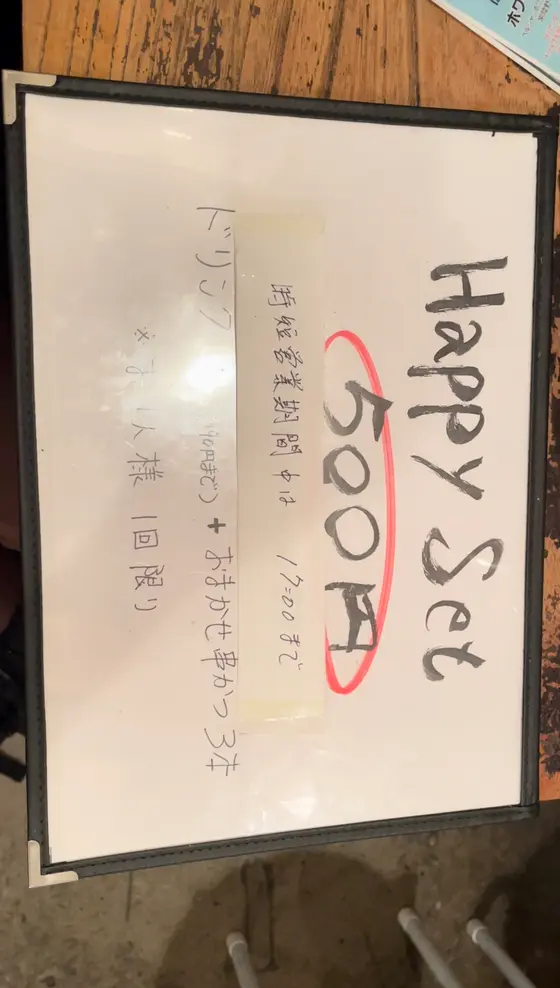 Happy Set
500円
時短営業期間中は 17:00まで
ドリンク 90円まで) + おまかせ串かつ3本
※お一人様 1回限り